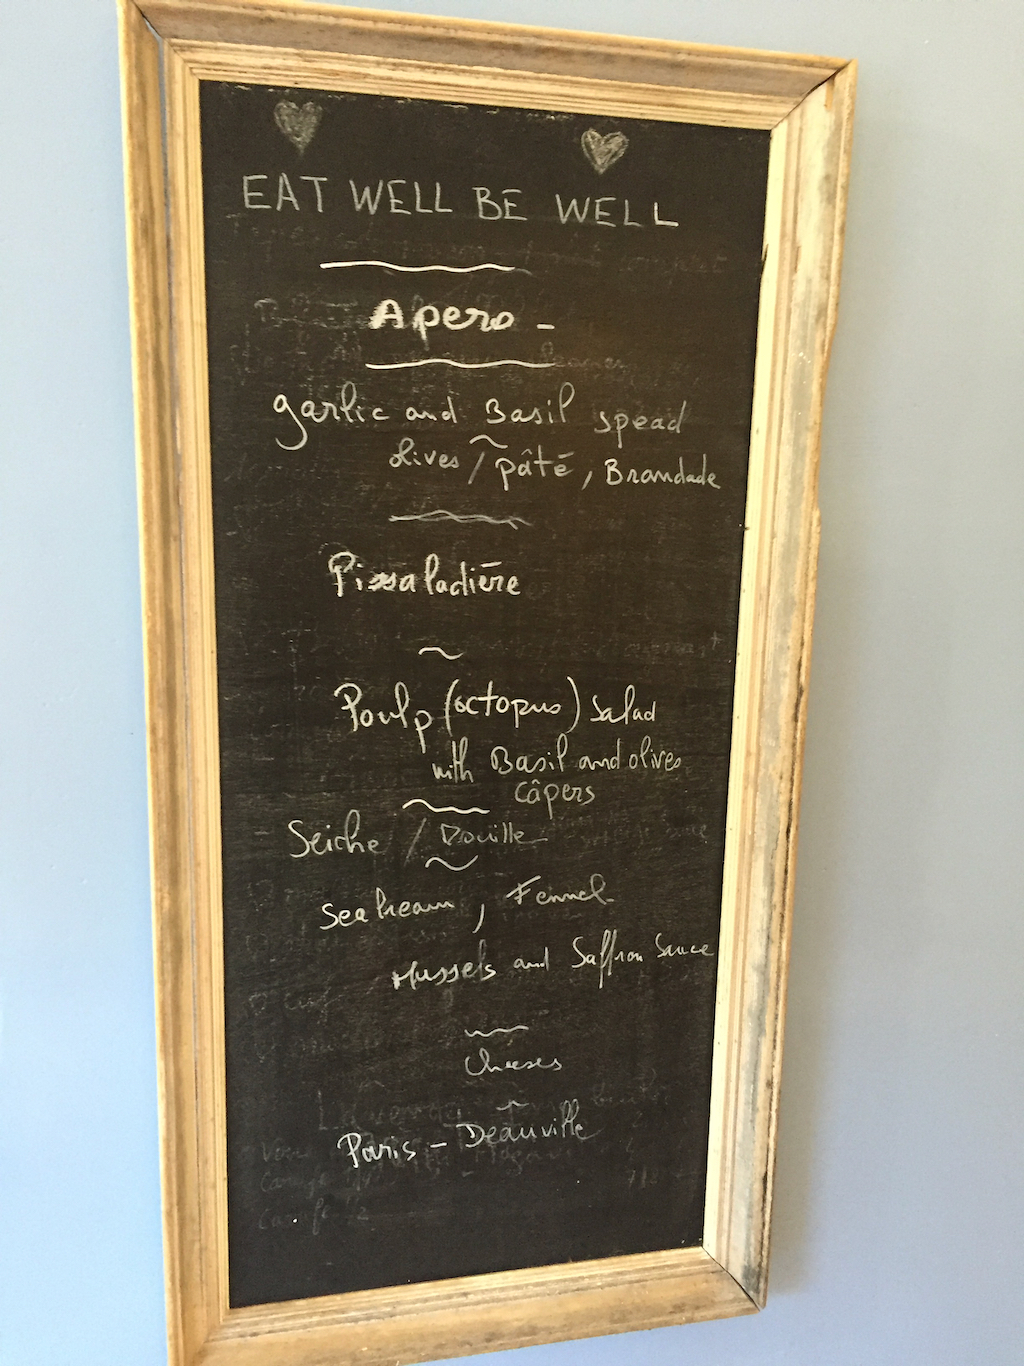 EAT WELL BE WELL
Apero -
garlic and Basil spead
olives / pâté, Brandade
Pissaladière
Poulp (octopus) salad
with Basil and olives
câpers
Seiche / Rouille
Seabream, Fennel
Mussels and Saffron Sauce
Cheeses
Paris - Deauville